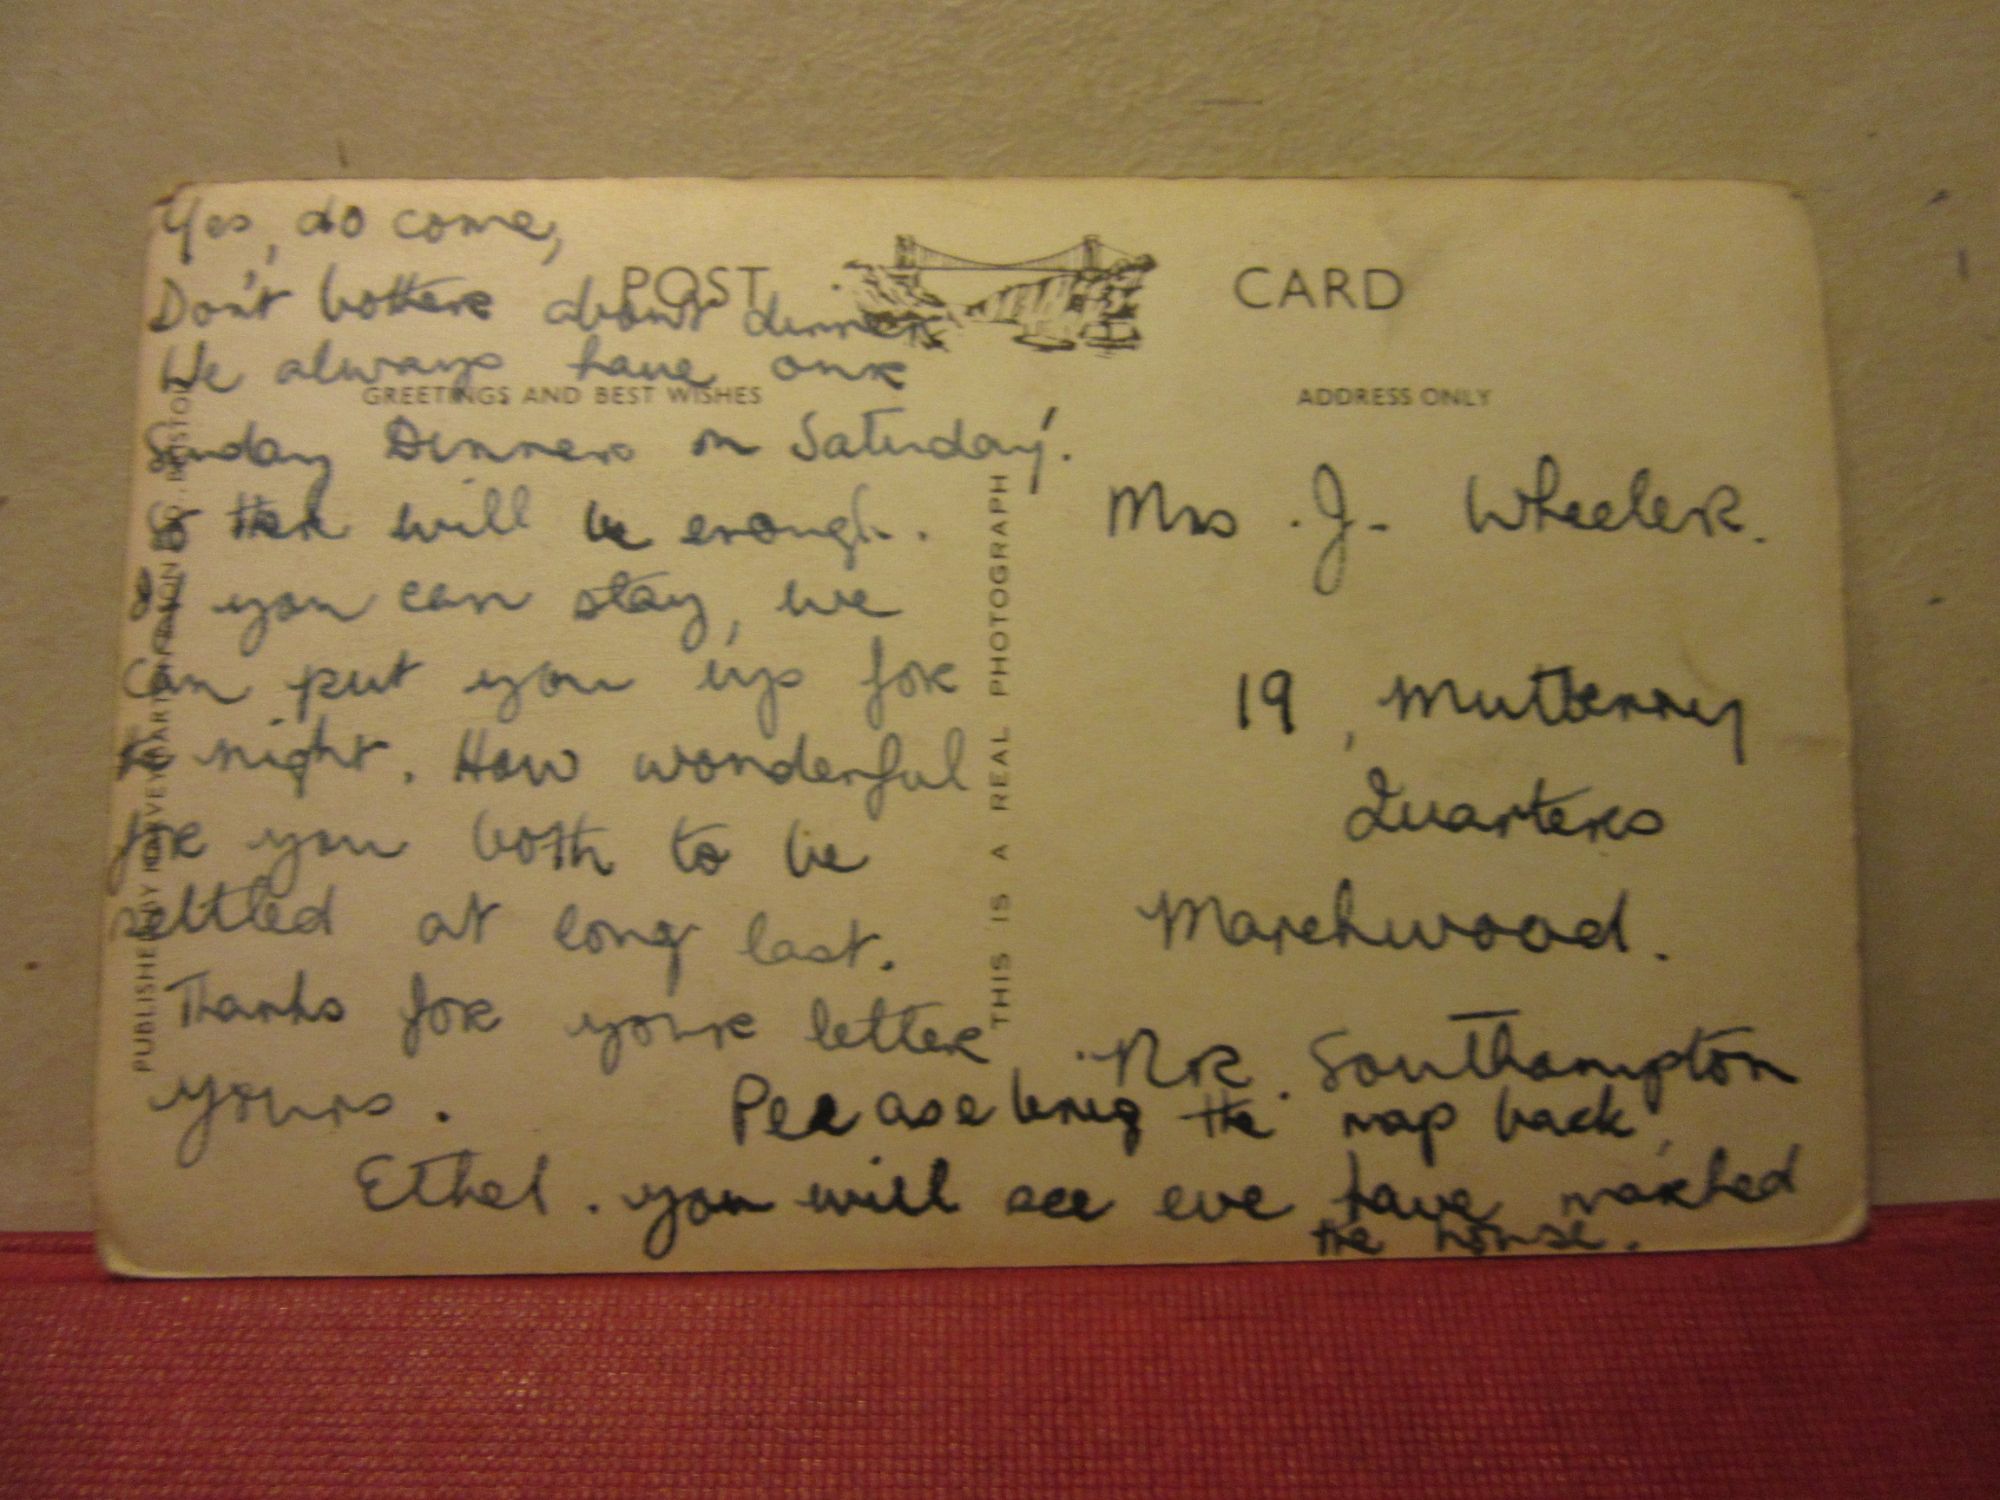 Yes, do come,
Don't bother about dinner
We always have our
Sunday Dinners on Saturday!
So there will be enough.
If you can stay, we
Can put you up for
the night. How wonderful
for you both to be
settled at long last.
Thanks for your letter
yours.
Ethel.
POST CARD
GREETINGS AND BEST WISHES
ADDRESS ONLY
THIS IS A REAL PHOTOGRAPH
PUBLISHED BY HARVEY BARTON BRISTOL
Mrs. J. Wheeler.
19, Mulberry
Quarters
Marchwood.
Nr. Southampton
Please bring the map back,
you will see we have marked
the house.